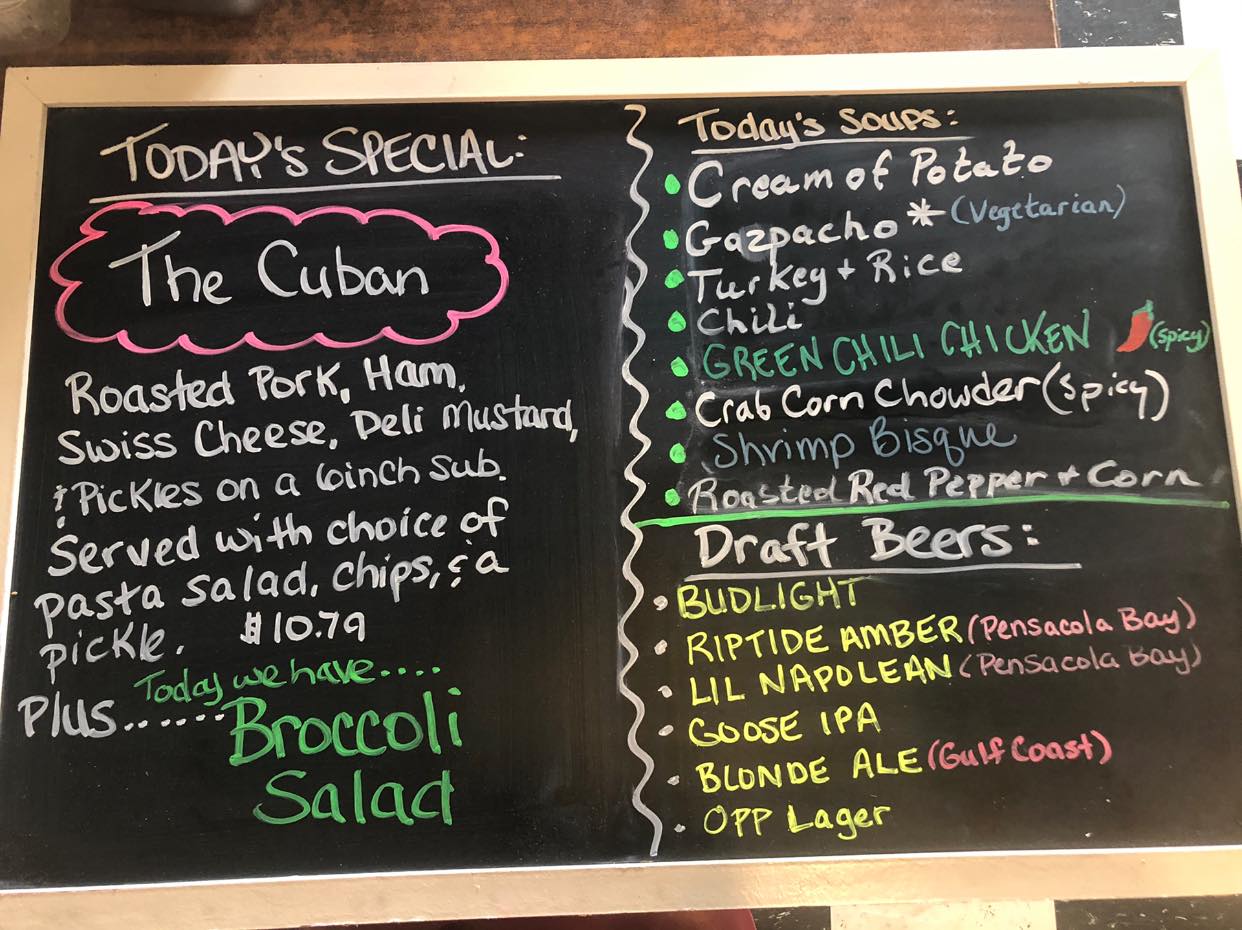 TODAY'S SPECIAL:
The Cuban
Roasted Pork, Ham,
Swiss Cheese, Deli Mustard,
& Pickles on a 6inch sub.
Served with choice of
pasta salad, chips, & a
pickle. $10.79
Today we have....
Plus......Broccoli
Salad
Today's Soups:
• Cream of Potato
• Gazpacho * (Vegetarian)
• Turkey + Rice
• Chili
• GREEN CHILI CHICKEN (spicy)
• Crab Corn Chowder (spicy)
• Shrimp Bisque
• Roasted Red Pepper + Corn
Draft Beers:
• BUDLIGHT
• RIPTIDE AMBER (Pensacola Bay)
• LIL NAPOLEAN (Pensacola Bay)
• GOOSE IPA
• BLONDE ALE (Gulf Coast)
• OPP Lager